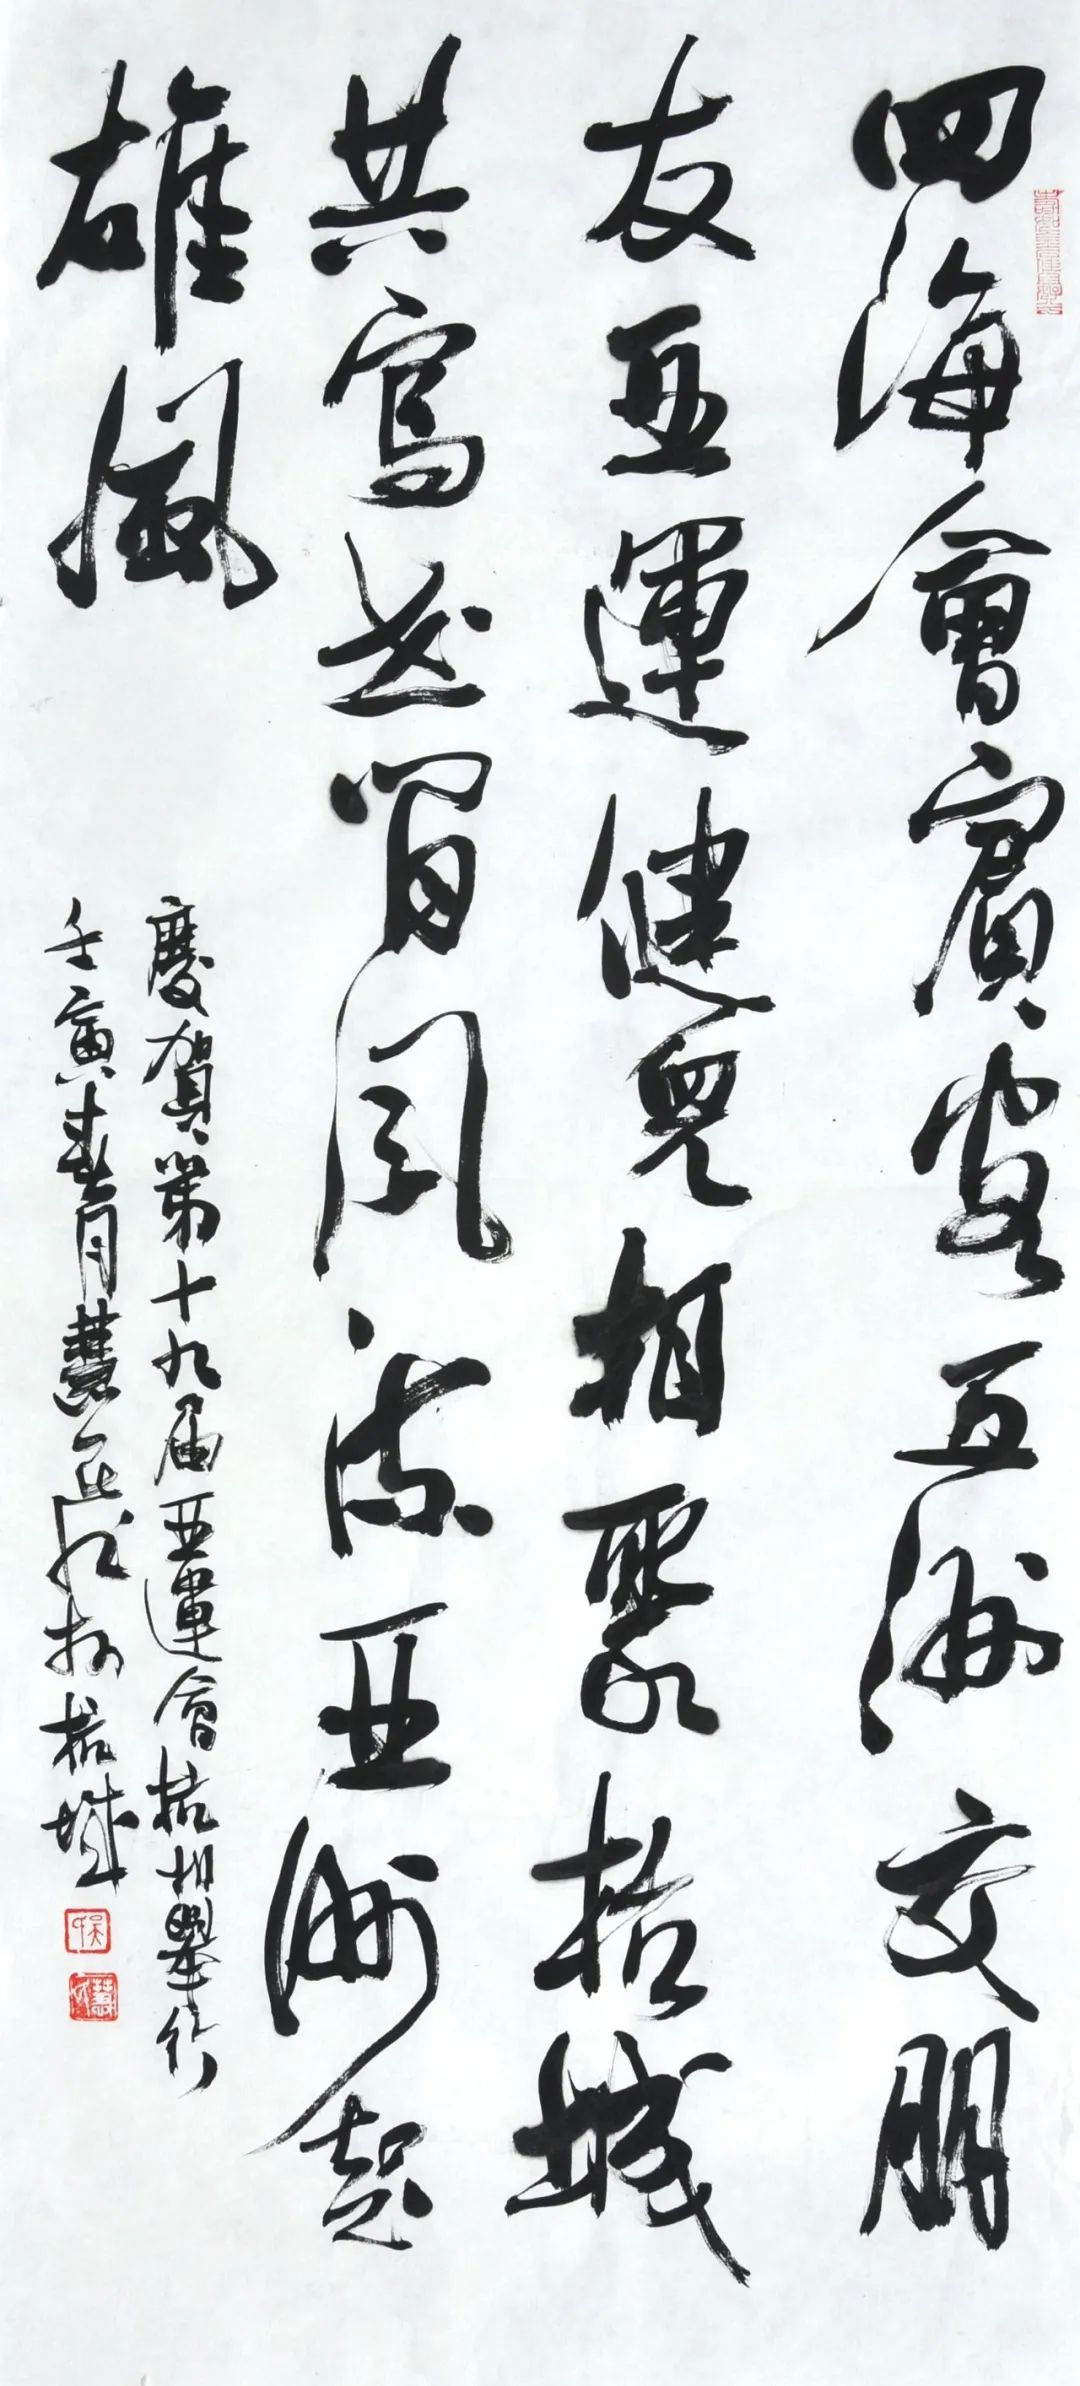 四海會賓客五洲交朋
友亞運健兒相聚杭城
共寫盛留風流亞洲起
雄風
慶賀第十九届亞運會杭州舉行
壬寅春月慧 杭城